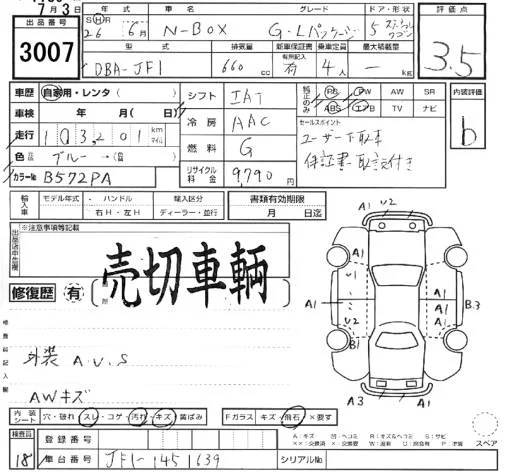 7月3日
出品番号
3007
年式 グレード ドア・形状 評価点
S H R
26 6月 N-BOX G・Lパッケージ 5 ステーションワゴン
3.5
型式 排気量 新車保証書 乗車定員 最大積載量
有無記入
DBA-JF1 660cc 有 4人 — kg
車歴 自家用・レンタ( )
シフト IAT
純正のみ
PS PW AW SR
ABS エアB TV ナビ
内装評価
b
車検 年 月
冷房 AAC
セールスポイント
ユーザー下取車
保証書・取説付き
走行 103,201 km マイル
燃料 G
色 ブルー→( )
リサイクル料金 9,790円
カラーNo B572PA
輸入車 モデル年式・ハンドル 輸入区分 書類有効期限
右H・左H ディーラー・並行 月 日迄
※注意事項等記載
売切車輌
修復歴 有
外装 A.U.S
AWキズ
A1 U2
A1 U1 A1 A1 B.3
U2 A1
B1
A3 A1
内装シート 穴・破れ スレ・コゲ・汚れ・キズ 黄ばみ
Fガラス キズ・飛石 ×要す
スペア
検査員
18
登録番号
車台番号 JF1-1451639 シリアルNo.